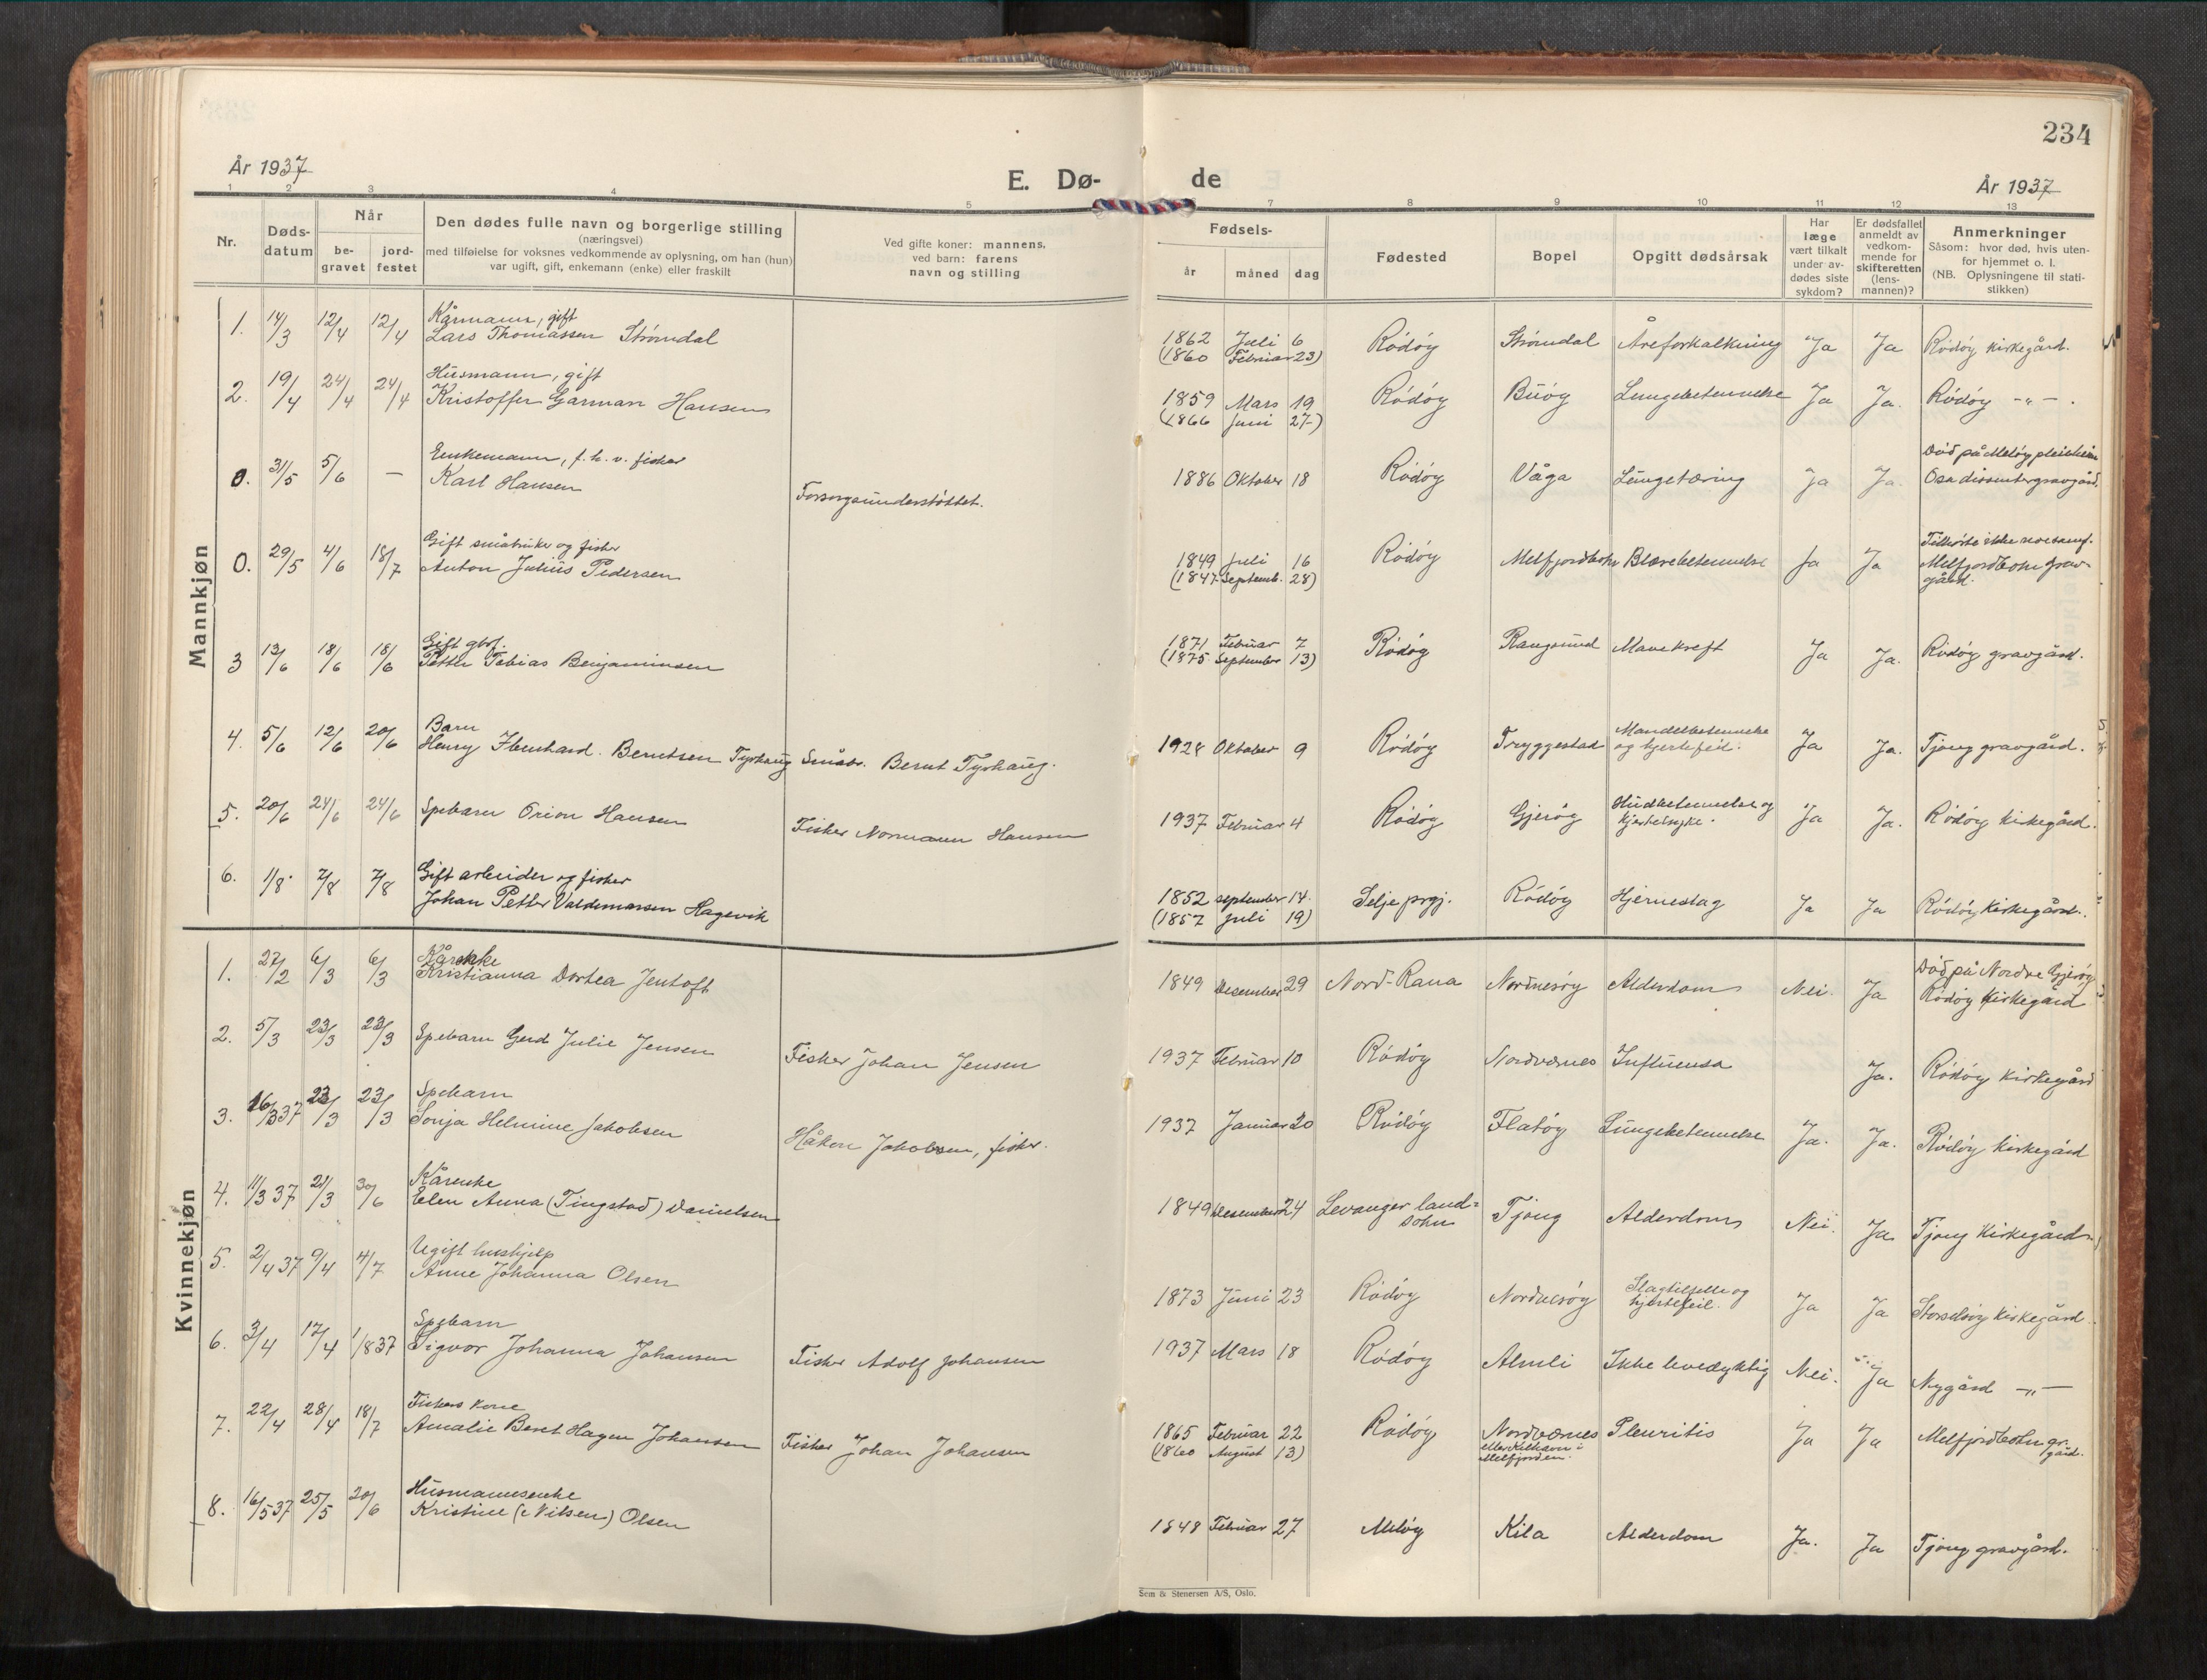 234
År 1937
E. Dø-
de
År 1937
1 2 3 4 5 7 8 9 10 11 12 13
Nr.
Døds-
datum
Når
be-
gravet
jord-
festet
Den dødes fulle navn og borgerlige stilling
(næringsvei)
med tilføielse for voksnes vedkommende av oplysning, om han (hun)
var ugift, gift, enkemann (enke) eller fraskilt
Ved gifte koner: mannens,
ved barn: farens
navn og stilling
Fødsels-
år
måned
dag
Fødested
Bopel
Opgitt dødsårsak
Har
læge
vært tilkalt
under av-
dødes siste
sykdom?
Er dødsfallet
anmeldt av
vedkom-
mende for
skifteretten
(lens-
mannen)?
Anmerkninger
Såsom: hvor død, hvis uten-
for hjemmet o. l.
(NB. Oplysningene til stati-
stikken)
Mannkjøn
Kårmann, gift
1. 14/3 12/4 12/4 Lars Thomassen Strømdal 1862 Juli 6 Rødøy Strømdal Åreforkalkning Ja Ja Rødøy kirkegård.
(1860 Februar 23)
Husmann, gift
2. 19/4 24/4 24/4 Kristoffer Garman Hansen 1859 Mars 19 Rødøy Buøy Lungebetennelse Ja Ja. Rødøy -"- .
(1866 Juni 27)
Enkemann, f.h.v. fisker Død på Meløy pleiehjem
0. 31/5 5/6 — Karl Hansen Forsorgsunderstøttet. 1886 Oktober 18 Rødøy Våga Lungetæring Ja Ja. Osa dissentergravgård.
Gift småbruker og fisker
0. 29/5 4/6 18/7 Anton Julius Pedersen 1849 Juli 16 Rødøy Melfjordbotn Blærebetennelse Ja Ja Tilhørte ikke noe samf.
(1847 Septemb. 28) Melfjordbotn grav-
gård.
Gift gbr.
3 13/6 18/6 18/6 Petter Tobias Benjaminsen 1871 Februar 7 Rødøy Rangsund Mavekreft Ja Ja. Rødøy gravgård.
(1875 September 13)
Barn Mandelbetennelse
4. 5/6 12/6 20/6 Henry Berntsen Tyshaug Småbr. Bernt Tyshaug. 1928 Oktober 9 Rødøy Tryggestad og hjertefeil. Ja Ja. Tjong gravgård.
5. 20/6 24/6 24/6 Spebarn Orion Hansen Fisker Normann Hansen 1937 Februar 4 Rødøy Gjerøy Hudbetennelse og Ja Ja. Rødøy kirkegård.
Gift arbeider og fisker
6. 1/8 7/8 7/8 Johan Petter Valdemarsen Hagevik 1852 september 14. Selje prgj. Rødøy Hjerneslag Ja Ja Rødøy kirkegård.
(1857 Juli 19)
Kvinnekjøn
Død på Nordre Gjerøy
1. 27/2 6/3 6/3 Kristianna Dortea Jentoft 1849 Desember 29 Nord-Rana Nordnesøy Alderdom Nei. Ja Rødøy kirkegård
2. 5/3 23/3 23/3 Spebarn Gerd Julie Jensen Fisker Johan Jensen 1937 Februar 10 Rødøy Nordværnes Influensa Ja. Rødøy kirkegård
Spebarn
3. 16/3 37 23/3 23/3 Sonja Helmine Jakobsen Håkon Jakobsen, fisker. 1937 Januar 20 Rødøy Flatøy Lungebetennelse Ja. Ja. Rødøy kirkegård
Kårenke
4. 11/3 37 21/3 30/6 Elen Anna (Tingstad) Danielsen 1849 Desember 24 Levanger land- Tjong Alderdom Nei. Ja Tjong kirkegård
sokn
Ugift hushjelp
5. 2/4 37 9/4 4/7 Anne Johanna Olsen 1873 Juni 23 Rødøy Nordnesøy Slagtilfelle og Ja Ja Storselsøy kirkegård.
hjertefeil.
Spebarn
6. 3/4 17/4 1/8 37 Sigvor Johanna Johansen Fisker Adolf Johansen 1937 Mars 18 Rødøy Almli Ikke levedyktig Nei. Ja Nygård -"-
Fiskers kone
7. 22/4 28/4 18/7 Amalie Beret Hagen Johansen Fisker Johan Johansen 1865 Februar 22 Rødøy Nordværnes Pleuritis Ja Ja Melfjordbotn gr.
(1860 August 13) gård.
Melfjorden.
Husmannsenke
8. 16/5 37 25/5 20/6 Kristine (Nilsen) Olsen 1848 Februar 27 Meløy Kila Alderdom Ja. Ja Tjong gravgård.
Sem & Stenersen A/S, Oslo.